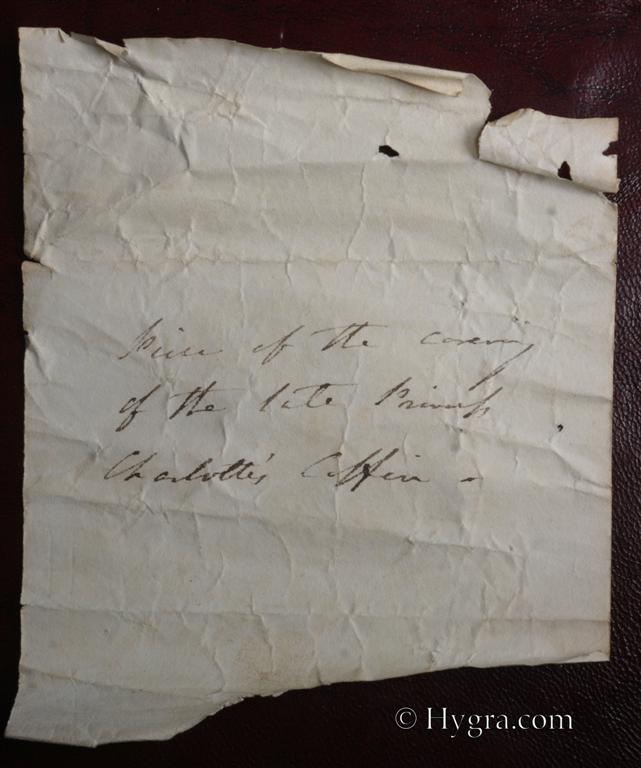 Piece of the covering
of the late Princess
Charlotte's Coffin -
© Hygra.com